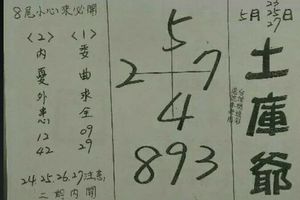 8尾小心來必開
<1>
委曲求全
09
29
<2>
內憂外患
12
42
24.25.26.27注意
二期內開
5
2 7
4
893
23
25
5月27日
土庫爺